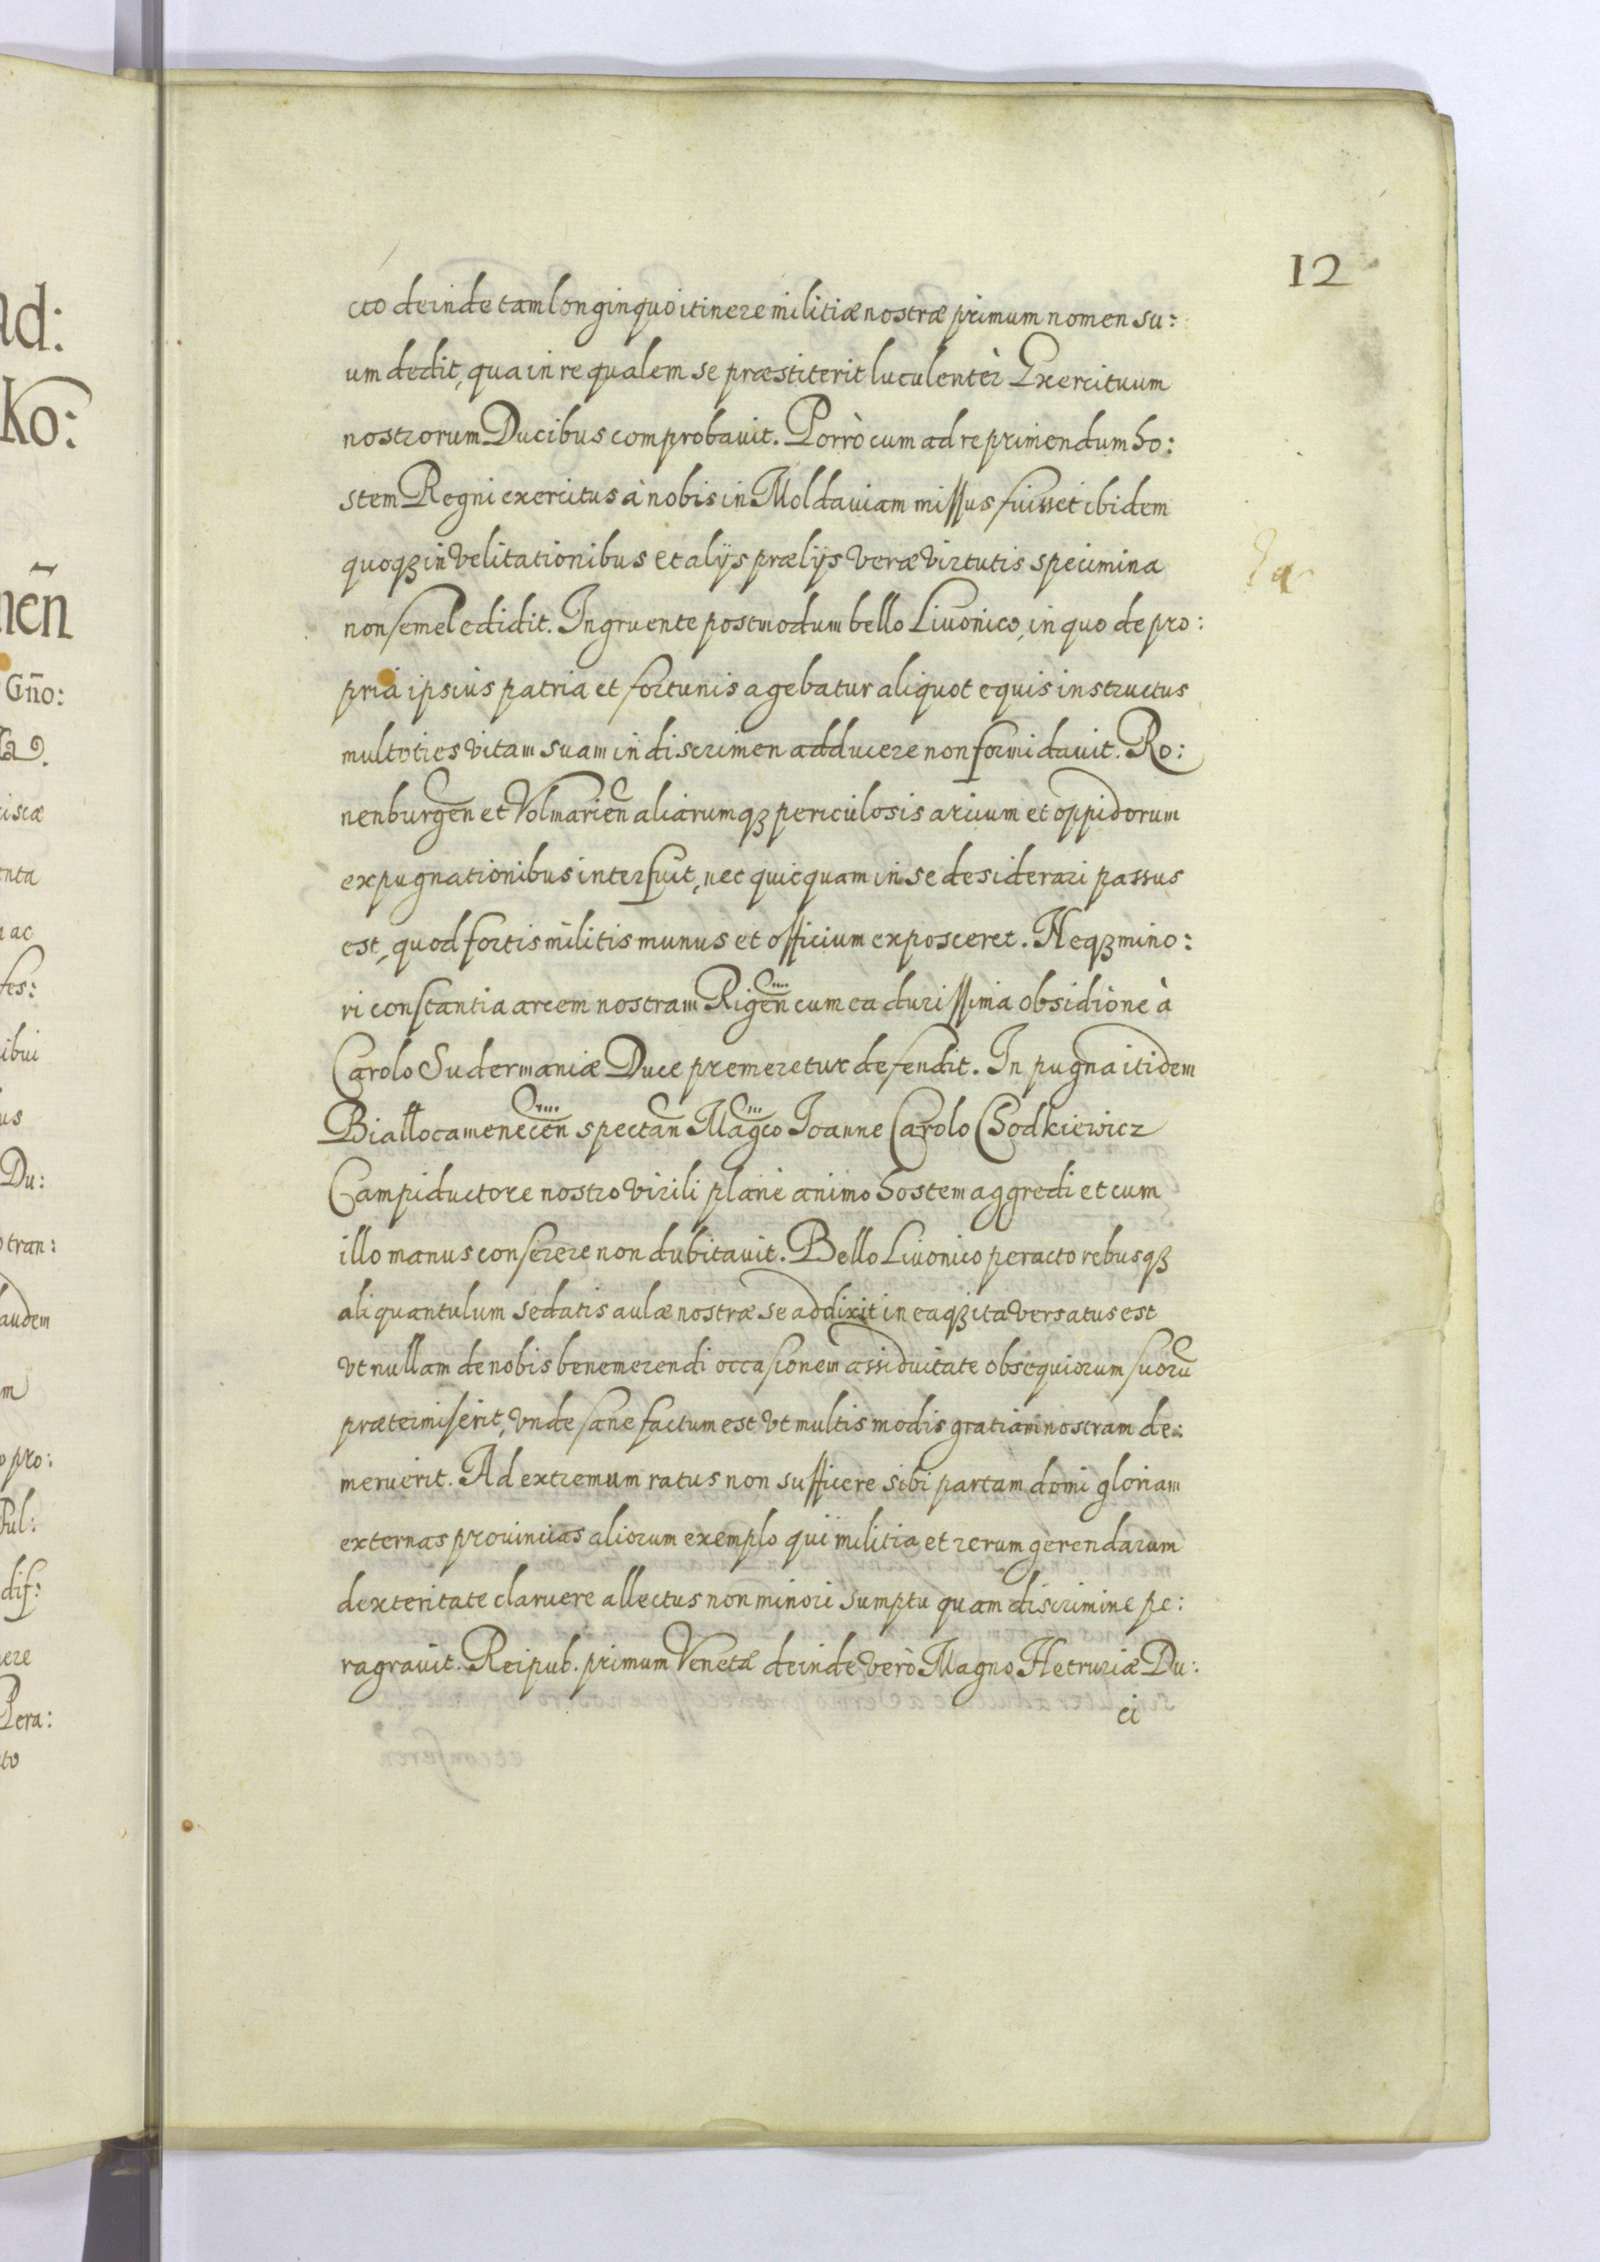 12
cto deinde tam longinquo itinere militiæ nostræ primum nomen su:
um dedit, qua in re qualem se præstiterit luculentèr Exercituum
nostrorum Ducibus comprobauit. Porrò cum ad reprimendum ho:
stem Regni exercitus à nobis in Moldauiam missus fuisset ibidem
quoqꝫ in Velitationibus et alijs prælijs Veræ Virtutis specimina
non semel edidit. Ingruente postmodum bello Liuonico, in quo de pro:
pria ipsius patria et fortunis agebatur aliquot equis instructus
multoties Vitam suam in discrimen adducere non formidauit. Ro:
nenburgen̄ et Volmarien̄ aliarumqꝫ periculosis arcium et oppidorum
expugnationibus interfuit, nec quicquam in se desiderari passus
est, quod fortis militis munus et officium exposceret. Neqꝫ mino:
ri constantia arcem nostram Rigen̄ cum ea durissima obsidione à
Carolo Sudermaniæ Duce premeretur defendit. In pugna itidem
Biallocamenecen̄ spectan̄ Mag̅co Joanne Carolo Chodkiewicz
Campiductore nostro Virili planè animo hostem aggredi et cum
illo manus conserere non dubitauit. Bello Liuonico peracto rebusqꝫ
aliquantulum sedatis aulæ nostræ se addixit in eaqꝫ ita Versatus est
Vt nullam de nobis benemerendi occasionem assiduitate obsequiorum suorū
prætermiserit, Vnde sane factum est Vt multis modis gratiam nostram de:
meruerit. Ad extremum ratus non sufficere sibi partam domi gloriam
externas prouincias aliorum exemplo qui militia et rerum gerendarum
dexteritate claruere allectus non minori sumptu quam discrimine pe:
ragrauit. Reipub. primum Venetæ deinde Verò Magno Hetruriæ Du:
ci